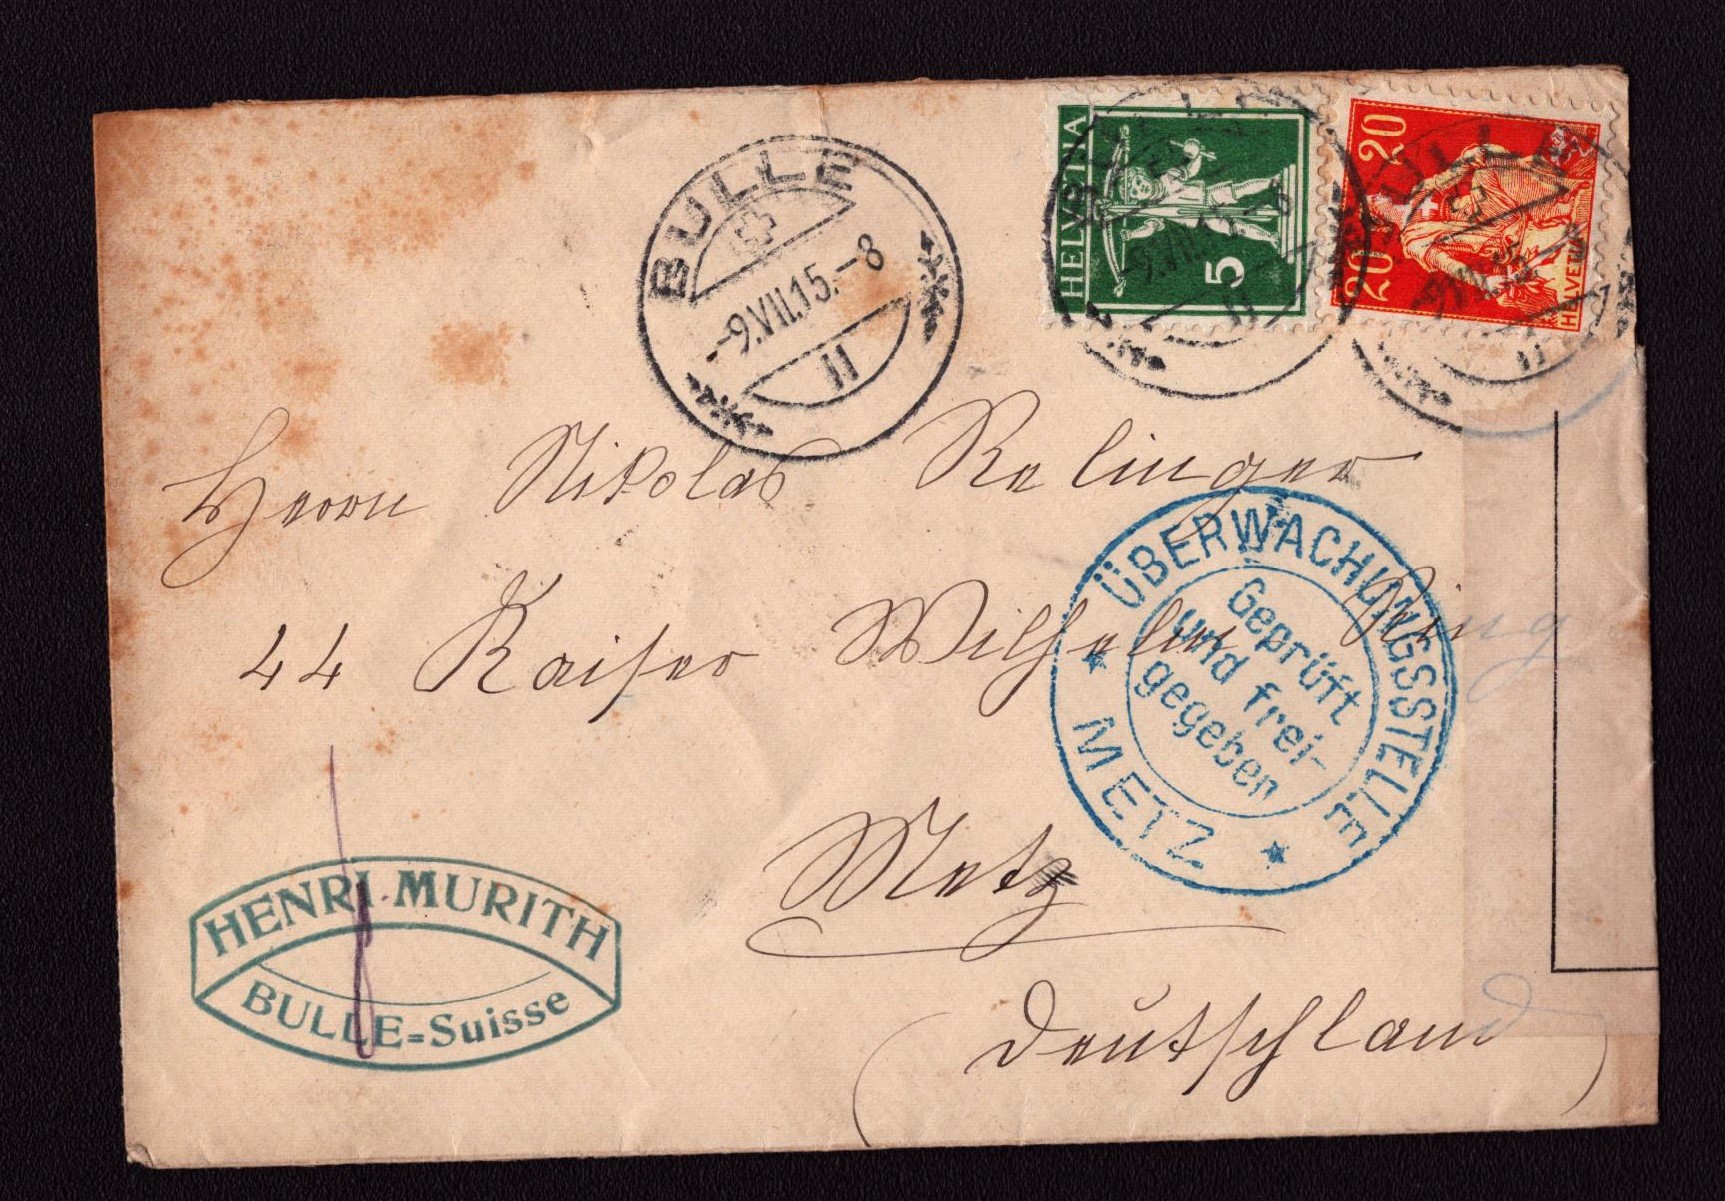 BULLE
-9.VII.15.-8
HELVETIA
5
20
20
HELVETIA
BULLE
Herrn Nikolas Relinger
44 Kaiser Wilhelm Ring
ÜBERWACHUNGSSTELLE
Geprüft
und frei-
gegeben
METZ
Metz
Deutschland
HENRI MURITH
BULLE=Suisse